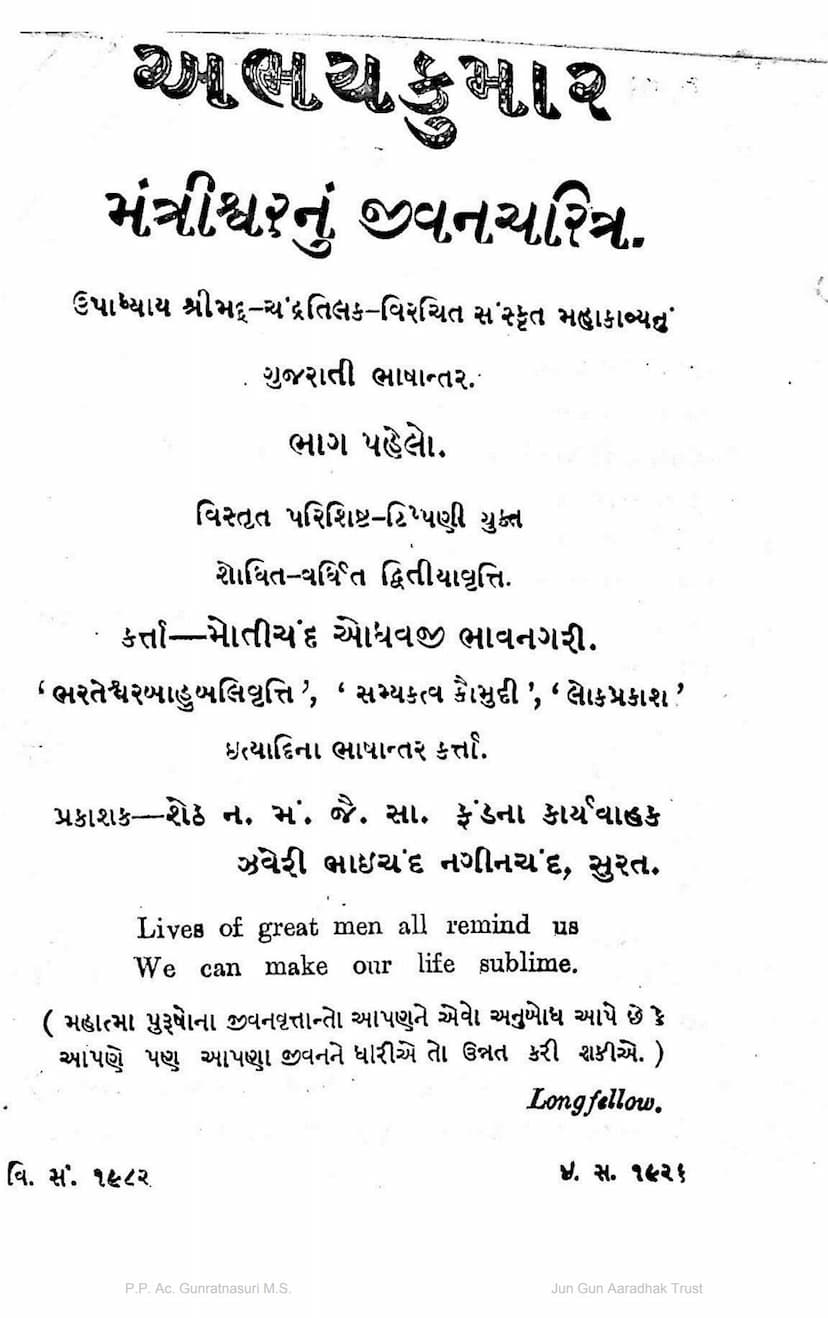 અભયકુમાર
મંત્રીશ્વરનું જીવનચરિત્ર.
ઉપાધ્યાય શ્રીમદ્-ચંદ્રતિલક-વિરચિત સંસ્કૃત મહાકાવ્યનું
ગુજરાતી ભાષાન્તર.
ભાગ પહેલો.
વિસ્તૃત પરિશિષ્ટ-ટિપ્પણી યુક્ત
શોધિત-વર્ધિત દ્વિતીયાવૃત્તિ.
કર્ત્તા—મોતીચંદ ઓધવજી ભાવનગરી.
‘ભરતેશ્વરબાહુબલિવૃત્તિ’, ‘સમ્યકત્વ કૌમુદી’, ‘લોકપ્રકાશ’
ઇત્યાદિના ભાષાન્તર કર્ત્તા.
પ્રકાશક—શેઠ ન. મં. જૈ. સા. ફંડના કાર્યવાહક
ઝવેરી ભાઇચંદ નગીનચંદ, સુરત.
Lives of great men all remind us
We can make our life sublime.
( મહાત્મા પુરૂષોના જીવનવૃત્તાન્તો આપણને એવો અનુબોધ આપે છે કે
આપણે પણ આપણા જીવનને ધારીએ તો ઉન્નત કરી શકીએ. )
Longfellow.
વિ. સં. ૧૯૮૨ ઇ. સ. ૧૯૨૬
P.P. Ac. Gunratnasuri M.S. Jun Gun Aaradhak Trust